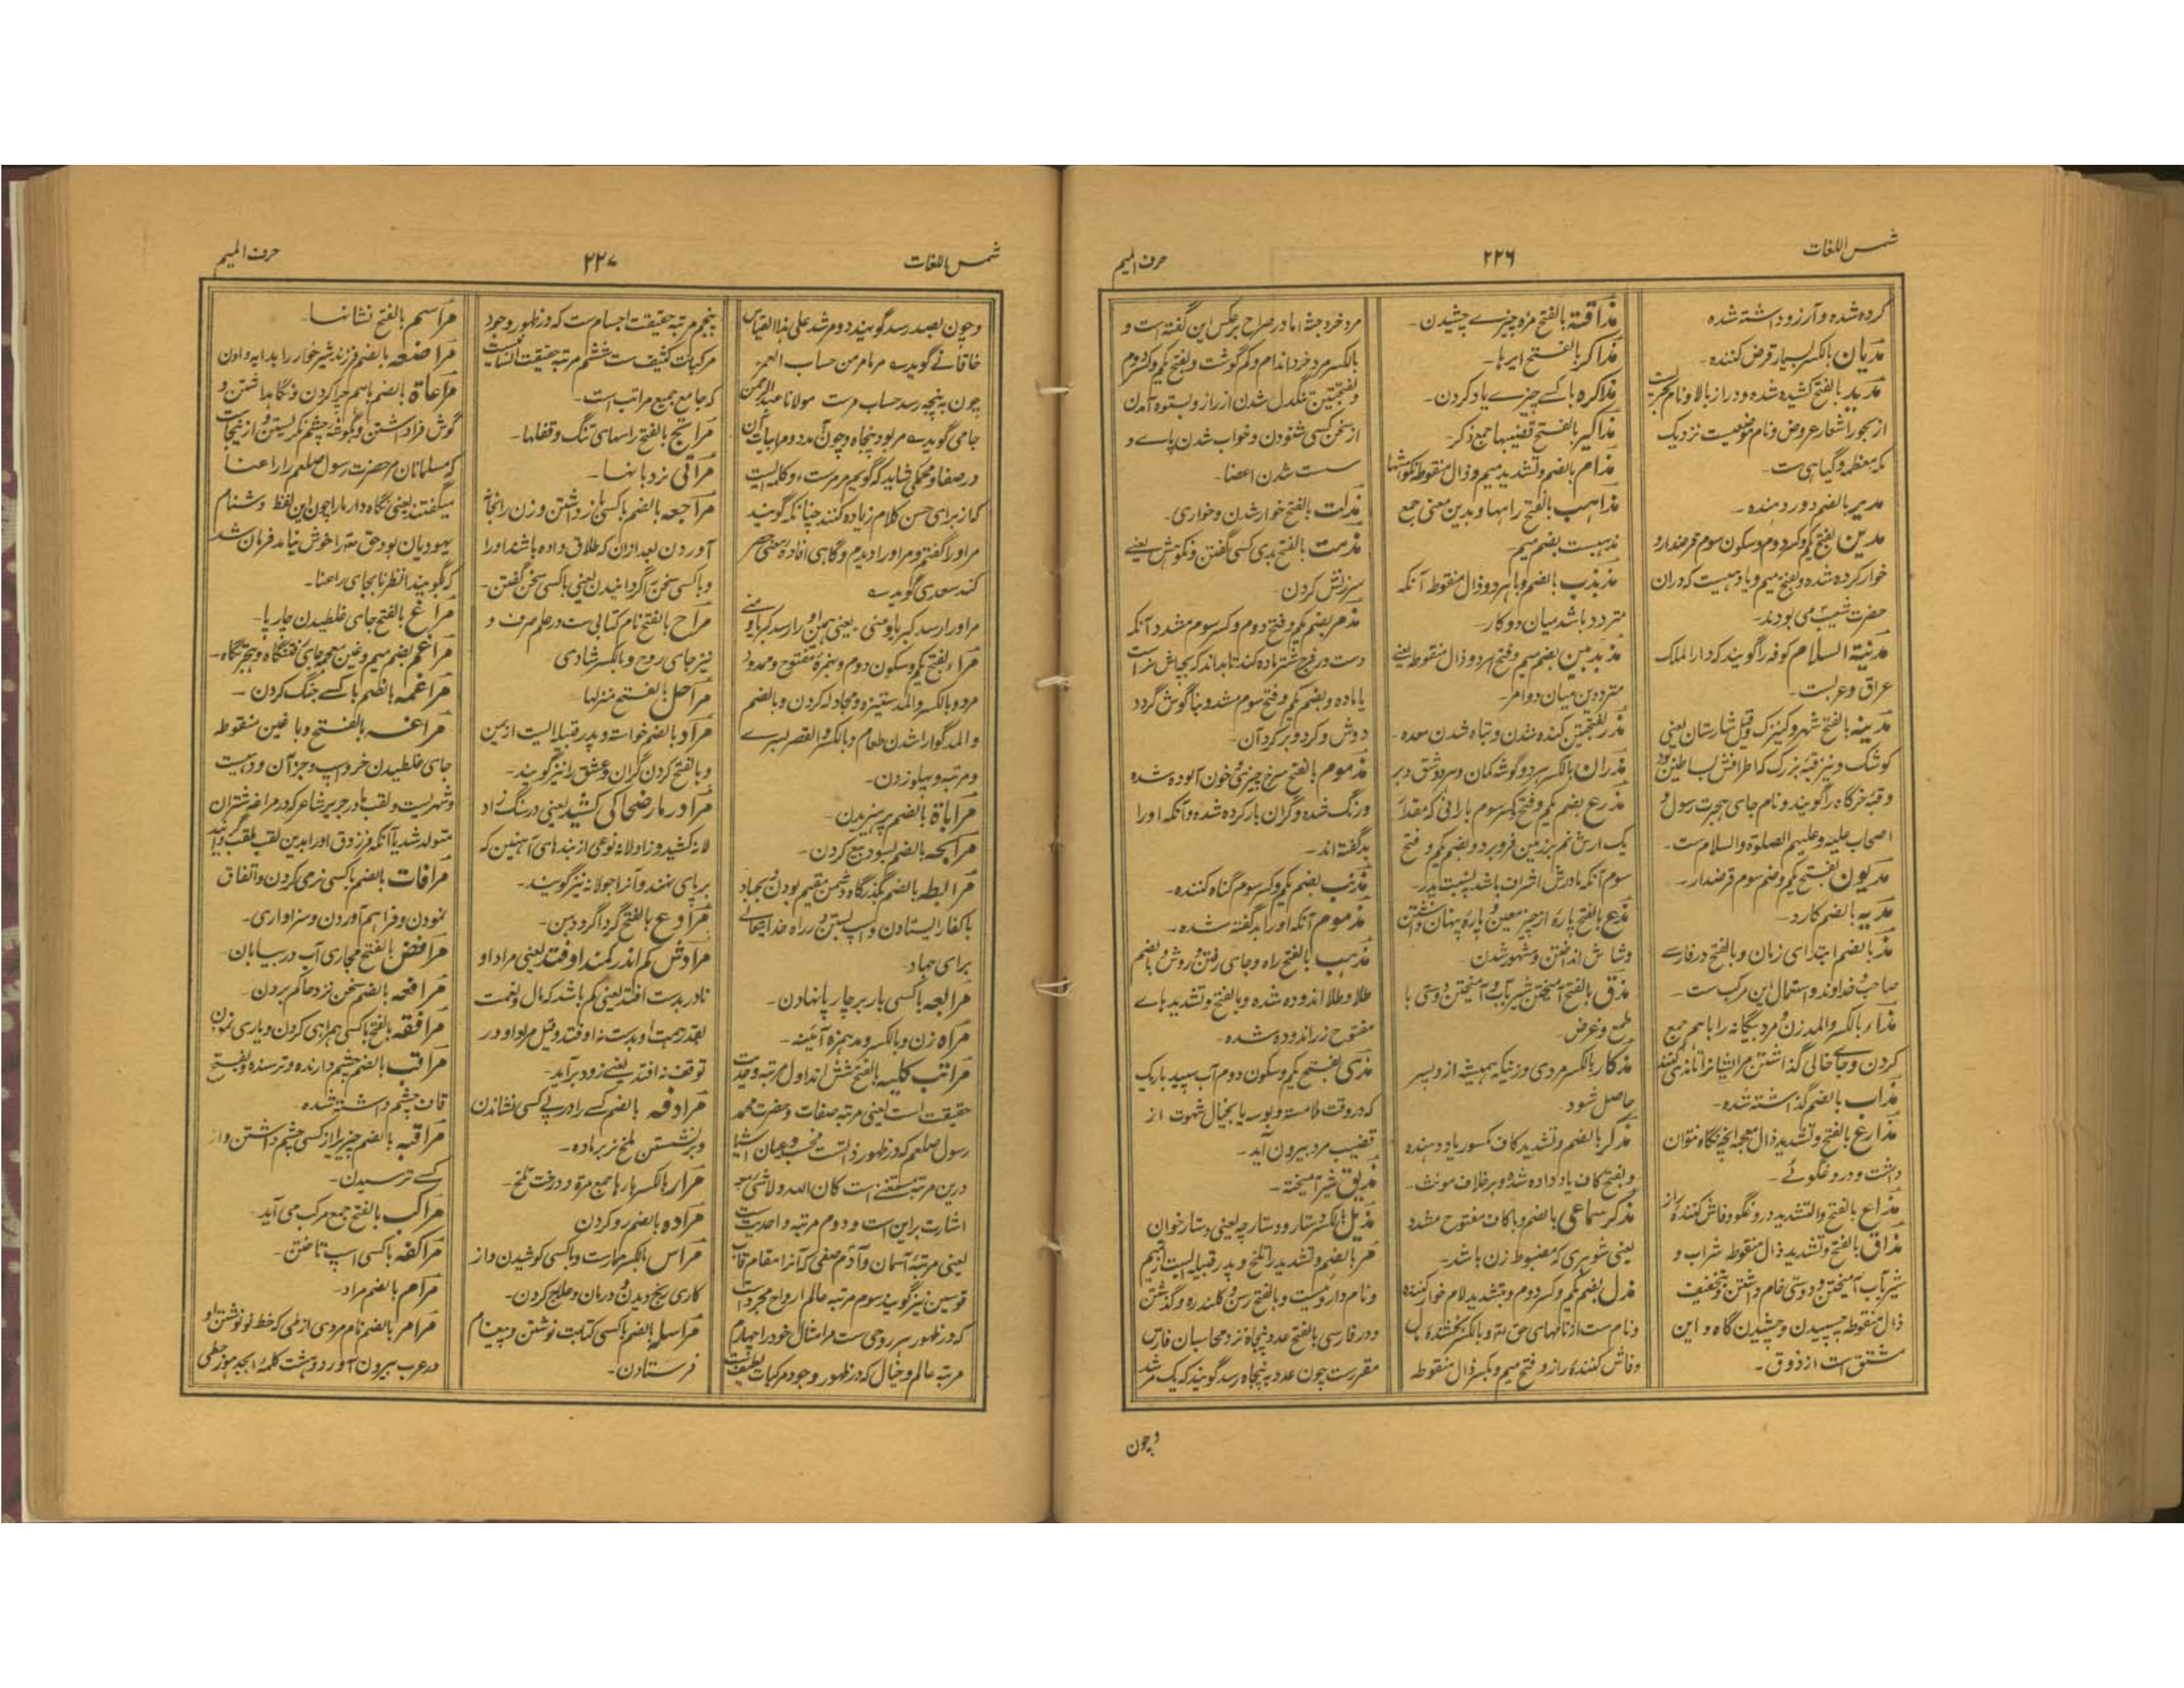 شمس اللغات
۲۲۶
حرف المیم
کرده شده و آرزو داشته شده
مدیان بالکسر بسیار قرض کننده۔
مدید بالفتح کشیده شده و دراز بالا و نام بحریست
از بحور اشعار عروض و نام موضعیست نزدیک
مکه معظمه و گیاهی ست۔
مدیر بالضم دور دهنده۔
مدین بفتح یکم و کسر دوم و سکون سوم قرضدار و
خوار کرده شده و بفتح میم و یا دهیست که دران
حضرت شعیب می بودند۔
مدینة السلام کوفه را گویند که دار الملک
عراق و عربست۔
مدینه بالفتح شهر و کنیزک و قیل شارستان یعنی
کوشک و نیز قبه بزرگ که اطرافش بساطین بود
وقبهٔ خرگاه را گویند و نام جای هجرت رسول و
اصحاب علیه و علیهم الصلوة والسلام ست۔
مدیون بفتح یکم و ضم سوم قرضدار۔
مدیه بالضم کارد۔
مذ بالضم ابتدای زمان و بالفتح در فارسے
صاحب و خداوند و استعمال این مرکب ست۔
مذاء بالکسر والمد زن و مرد بیگانه را باهم جمع
کردن و جای خالی گذاشتن مر ایشانرا تا مذی کنند
مذاب بالضم گذاشته شده۔
مذارع بالفتح و تشدید ذال معجمه آنچه نگاه نتوان
داشت و دروغگوئے۔
مذاع بالفتح والتشدید دروغگو و فاش کننده راز
مذاق بالفتح و تشدید ذال منقوطه شراب و
شیر بآب آمیختن و دوستی خام داشتن و بتخفیف
ذال منقوطه چسپیدن و چشیدن گاه و این
مشتق است از ذوق۔
مذاقة بالفتح مزه چیزے چشیدن۔
مذاکر بالفتح ایرها۔
مذاکره با کسے چیزے یاد کردن۔
مذاکیر بالفتح قضیبها جمع ذکر۔
مذام بالضم و تشدید میم و ذال منقوطه نکوهشها
مذاهب بالفتح راهها و بدین معنی جمع
مذهبست بضم میم۔
مذبذب بالضم و با هر دو ذال منقوطه آنکه
متردد باشد میان دو کار۔
مذبذبین بضم میم و فتح هر دو ذال منقوطه یعنے
مترددین میان دو امر۔
مذر بفتحتین گنده شدن و تباه شدن معده۔
مذران بالکسر هر دو گوشه کمان و هر دو شق دبر
مذرع بضم یکم و فتح و کسر سوم بارانی که مقدار
یک ارش نم بزمین فرو برد و بضم یکم و فتح
سوم آنکه مادرش اشرف باشد به نسبت پدر۔
مذع بالفتح پاره از چیز معین و پاره پنهان داشتن
وشاش انداختن و مشهور شدن۔
مذق بالفتح آمیختن شیر بآب و آمیختن دوستی با
طمع و غرض۔
مذکار بالکسر مردی و زنیکه همیشه از و پسر
حاصل شود۔
مذکر بالضم و تشدید کاف مکسور یاد دهنده
وبفتح کاف یاد داده شده و بر خلاف مونث۔
مذکر سماعی بالضم و با کاف مفتوح مشدد
یعنی شوهری که مضبوط زن باشد۔
مذل بضم یکم و کسر دوم و بتشدید لام خوار کننده
ونام ست از نامهای حق تعه و بالکسر کشنده
وفاش کننده راز و فتح میم و بکسر ذال منقوطه
مرد خرد جثه اما در صراح بر عکس این گفته است و
بالکسر مرد خرد اندام و کم گوشت و بفتح یکم و کسر دوم
وبفتحتین تنگدل شدن از راز و بستوه آمدن
از سخن کسی شنودن و خواب شدن پاے و
سست شدن اعضا۔
مذلت بالفتح خوار شدن و خواری۔
مذمت بالفتح بدی کسی گفتن و نکوهش یعنے
سرزنش کردن۔
مذمر بضم یکم و فتح دوم و کسر سوم مشدد آنکه
دست در فرج شتر ماده کند تا بداند که بچه اش نر است
یا ماده و بضم یکم و فتح سوم مشدد بنا گوش گردد
دوش و گرد و بر گرد آن۔
مذموم بالفتح سرخ چیزی و خون آلوده شده
ورنگ شده و گران بار کرده شده و آنکه او را
بد گفته اند۔
مذنب بضم یکم و کسر سوم گناه کننده۔
مذموم آنکه او را بد گفته شده۔
مذهب بالفتح راه و جای رفتن و روش و بالضم
طلا و طلا اندوده شده و بالفتح و تشدید هاے
مفتوح زر اندوده شده۔
مذی بفتح یکم و سکون دوم آب سپید باریک
که در وقت ملامسه و بوسه یا بخیال شهوت از
قضیب مرد بیرون آید۔
مذیق شیر آمیخته۔
مذیل بالکسر دستار و دستارچه یعنی دستارخوان
مر بالضم و تشدید را تلخ و پدر قبیله ایست از تمیم
ونام داروئیست و بالفتح رسن و کلند ره و گذشتن
ودر فارسی بالفتح عدد پنجاه نزد محاسبان فارس
مقررست چون عدد به پنجاه رسد گویند که یک مر شد
وچون
شمس اللغات
۲۲۷
حرف المیم
وچون بصد رسد گویند دو مر شد علی هذا القیاس
خاقانے گوید ے مر بامر من حساب العمر
چون به پنجه رسد حساب مرست مولانا عبد الرحمن
جامی گوید ے مر بود پنجاه و چون آمد دو مر ابیات آن
در صفا و محکمی شاید که گویم مر مرست ، و کلمه ایست
که از برای حسن کلام زیاده کنند چنانکه گویند
مر او را گفتم و مر او را دیدم و گاهی افاده معنی حصر
کند سعدی گوید ے
مر او را رسد کبریا و منی۔ یعنی همین او را رسد کبریا و منے
مراء بفتح یکم و سکون دوم و همزه مفتوح و ممدود
مرد و بالکسر والمد ستیزه و مجادله کردن و بالضم
والمد گوارا شدن طعام و بالکسر والقصر لیسرے
ومرتبه و پهلو زدن۔
مراباة بالضم پرهیزیدن۔
مرابحه بالضم بسود بیع کردن۔
مرابطه بالضم بگذرگاه دشمن مقیم بودن و بجهاد
با کفار ایستادن و اسپ بستن در راه خدایتعالے
برای جهاد۔
مرابعه با کسی بار بر چارپا نهادن۔
مراة زن و بالکسر و مد همزه آئینه۔
مراتب کلیه بالفتح شش اند اول مرتبه وحدت
حقیقت است یعنی مرتبه صفات و حضرت محمد
رسول صلعم که در ظهور ذالست فحسب و عیان اشیا
درین مرتبه مستغنی است کان الله و لا شی معه
اشارت براین است و دوم مرتبه واحدیت
یعنی مرتبهٔ آسمان و آدم صفی که آنرا مقام قاب
قوسین نیز گویند سوم مرتبه عالم ارواح مجرداست
که در ظهور هر روحی ست مر امثال خود را چهارم
مرتبه عالم و خیال که در ظهور وجود مرکبات لطیفست
پنجم مرتبه حقیقت اجسام ست که در ظهور وجود
مرکبات کثیف ست ششم مرتبه حقیقت انسانیست
که جامع جمیع مراتب است۔
مراتج بالفتح راههای تنگ و قفلها۔
مراقی نردبانها۔
مراجعه بالضم با کسی باز داشتن و زن را نجا
آوردن بعد ازان که طلاق داده باشند او را
وبا کسی سخن گردانیدن یعنی با کسی سخن گفتن۔
مراح بالفتح نام کتابی ست در علم صرف و
نیز جای روح و بالکسر شادی
مراحل بالفتح منزلها
مراد بالضم خواسته و پدر قبیله ایست از یمن
وبالفتح گردن گران و عشق را نیز گویند۔
مرادر مارضحاکی کشید یعنی در سنگ زاد
لانه کشید و زاولانه نوعی از بندهای آهنین که
بر پای نهند و آنرا جولانه نیز گویند۔
مرادع بالفتح گرداگرد دین۔
مرادش کم اندر کمند اوفتد یعنی مراد او
نادر بدست افتد یعنی کم باشد که مال و نعمت
بقدر همت او بدست نه اوفتد و قیل مراد او در
توقف نه افتد یعنی زود برآید۔
مرادفه بالضم کسے را در پے کسی نشاندن
وبر نشستن ملخ نر بر ماده۔
مرار بالکسر بارها جمع مرة و درخت تلخ۔
مراده بالضم رد کردن
مراس بالکسر مهارت و با کسی کوشیدن و از
کاری رنج دیدن و درمان و علاج کردن۔
مراسله بالضم با کسی کتابت نوشتن و پیغام
فرستادن۔
مراسم بالفتح نشانها۔
مراضعه بالضم فرزند شیر خوار را بدایه دادن
مراعاة بالضم باهم چرا کردن و نگاهداشتن و
گوش فرا داشتن و بگوشه چشم نگریستن و از نیجاست
که مسلمانان مر حضرت رسول صلعم را راعنا
میگفتند یعنی نگاه دار ما را چون این لفظ دشنام
یهودیان بود حق تعه را خوش نیامد فرمان شد
که بگویید انظرنا بجای راعنا۔
مراغ بالفتح جای غلطیدن چارپا۔
مراغم بضم میم و غین معجمه جای گفتگاه و هجرتگاه۔
مراغمه بالضم با کسے جنگ کردن۔
مراغه بالفتح و با غین منقوطه
جای غلطیدن خر و اسپ و جز آن و دهیست
وشهریست و لقب مادر جریر شاعر که در مراغه شتران
متولد شد یا آنکه فرزدق او را بدین لقب ملقب گردانید
مرافات بالضم با کسی نرمی کردن و اتفاق
نمودن و فراهم آوردن و سزاواری۔
مرافض بالفتح مجاری آب در بیابان۔
مرافعه بالضم سخن نزد حاکم بردن۔
مرافقه بالفتح با کسی همراهی کردن و یاری نمودن
مراقب بالضم چشم دارنده و ترسنده و بفتح
قاف چشم داشته شده۔
مراقبه بالضم چیزیرا از کسی چشم داشتن و از
کسے ترسیدن۔
مراکب بالفتح جمع مرکب می آید۔
مراکضه با کسی اسپ تاختن۔
مرام بالضم مراد۔
مرامر بالضم نام مردی از طی که خط نو نوشتن او
در عرب بیرون آورد و هشت کلمهٔ ابجد هوز حطی